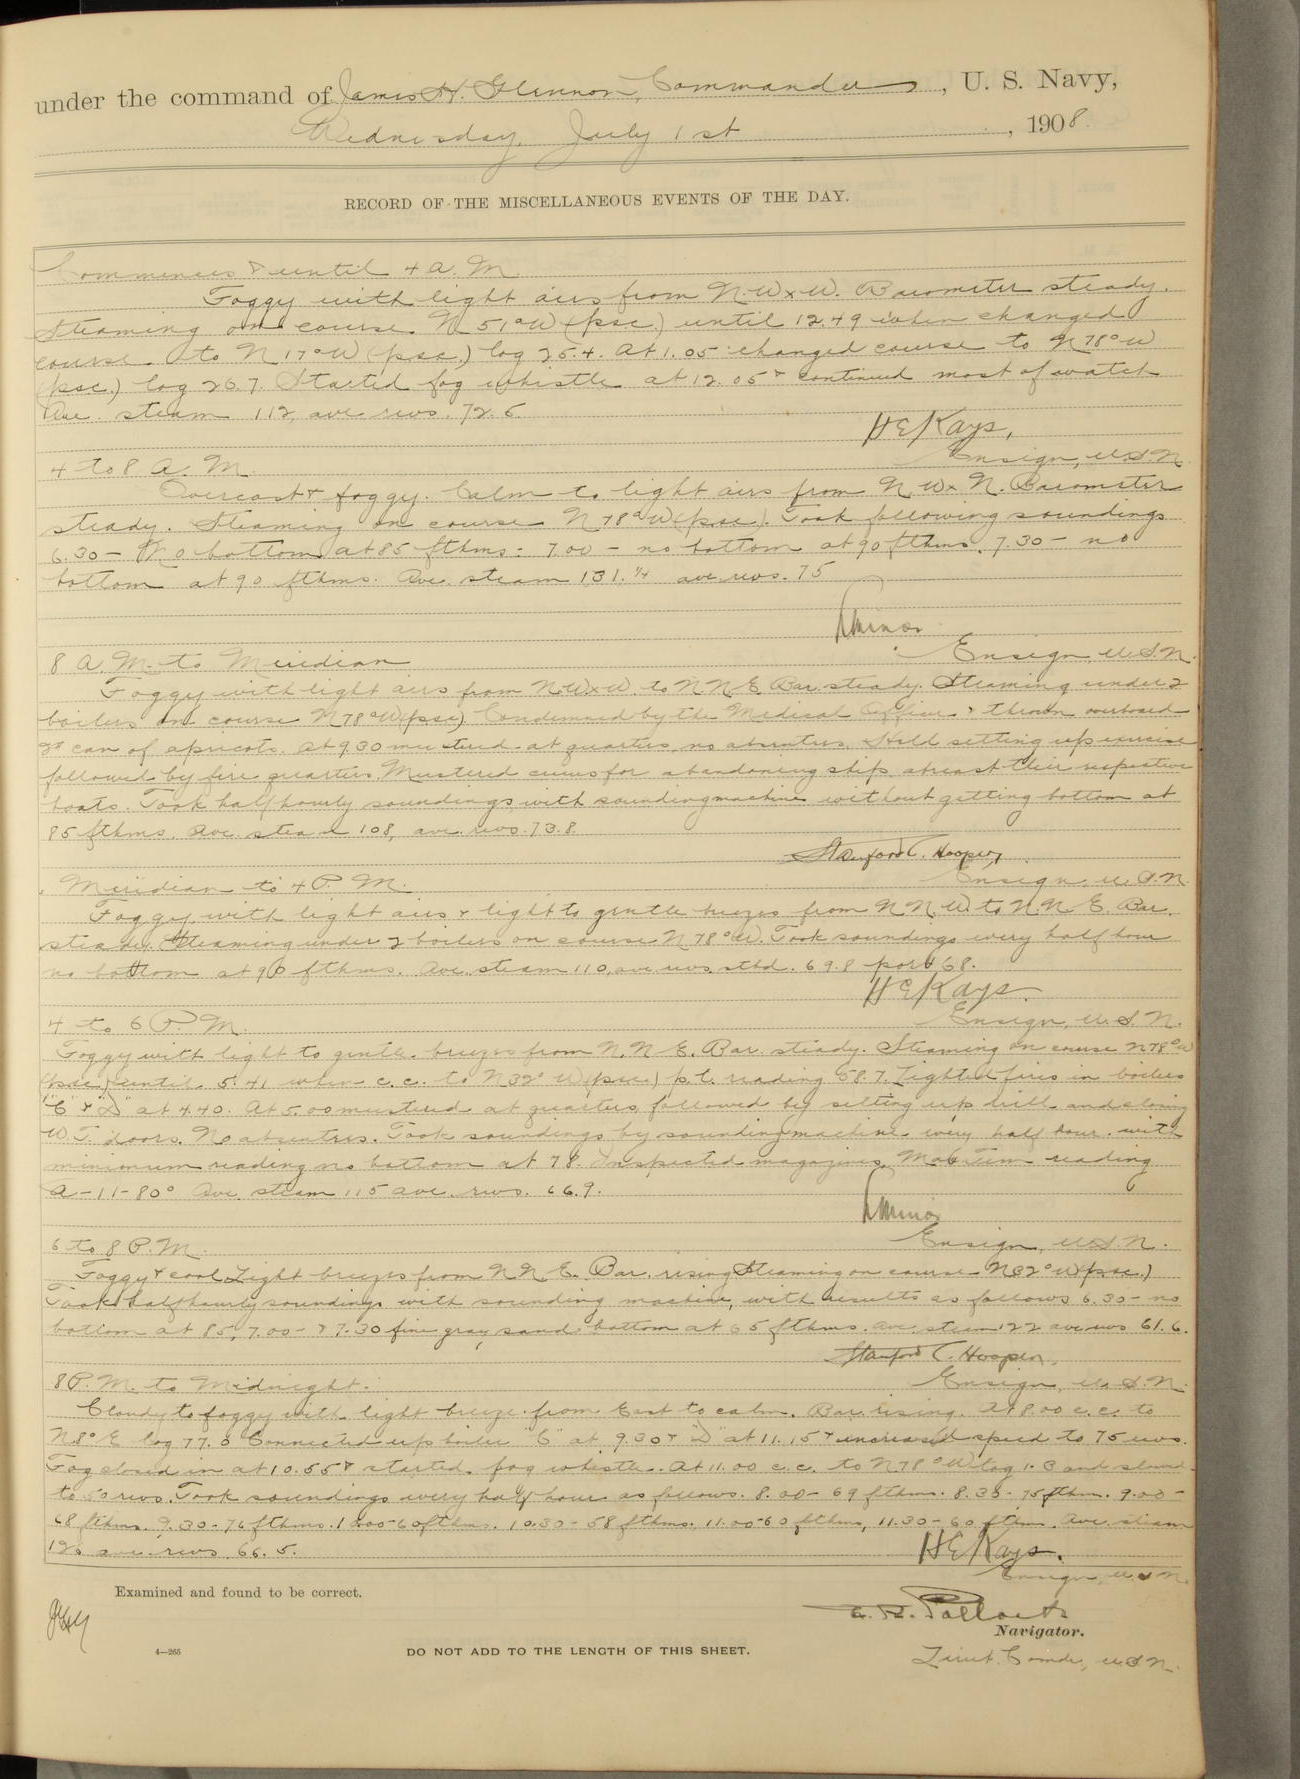 under the command of James H. Glennon, Commander, U. S. Navy,
Wednesday, July 1st, 1908.
RECORD OF THE MISCELLANEOUS EVENTS OF THE DAY.
Commences & until 4 A. M.
Foggy with light airs from N.W x W. Barometer steady.
Steaming on course N 51° W (psc.) until 12.49 when changed
course to N 17° W (psc.) log 25.4. At 1.05 changed course to N 78° W
(psc.) log 26.7. Started fog whistle at 12.05 & continued most of watch
Ave. steam 112, ave revs. 72.6.
H E Kays,
Ensign, U.S.N.
4 to 8 A. M.
Overcast & foggy. Calm to light airs from N. W x N. Barometer
steady. Steaming on course N 78° W (psc). Took following soundings
6.30 - No bottom at 85 fthms: 7.00 - no bottom at 90 fthms. 7.30 - no
bottom at 90 fthms. Ave. steam 131.¼ ave revs. 75
Minor
Ensign, U.S.N.
8 A. M. to Meridian
Foggy with light airs from N.W x W. to N N E. Bar. steady. Steaming under 2
boilers on course N 78° W (psc) Condemned by the Medical Officer & thrown overboard
can of apricots. At 9.30 mustered at quarters, no absentees. Held setting up exercise
followed by fire quarters. Mustered crews for abandoning ship abreast their respective
boats. Took half hourly soundings with sounding machine without getting bottom at
85 fthms. Ave. steam 108, ave. revs. 73.8.
Stanford C. Hooper,
Ensign, U.S.N.
Meridian to 4 P. M.
Foggy with light airs & light to gentle breezes from N N. W. to N N. E. Bar.
steady. Steaming under 2 boilers on course N 78° W. Took soundings every half hour
no bottom at 90 fthms. Ave. steam 110, ave revs. stbd. 69.8 port 68.
H E Kays.
Ensign, U.S.N.
4 to 6 P. M.
Foggy with light to gentle breezes from N. N. E. Bar. steady. Steaming on course N 78° W
(psc.) until 5.41 when c.c. to N 32° W (psc.) p.l. reading 58.7. Lighted fires in boilers
"C" & "D" at 4.40. At 5.00 mustered at quarters followed by setting up drill and closing
W.T. doors. No absentees. Took soundings by sounding machine every half hour with
minimum reading no bottom at 78. Inspected magazines. Max Tem reading
A-11-80° Ave. steam 115 ave. revs. 66.9.
Minor
Ensign, U.S.N.
6 to 8 P. M.
Foggy & cool. Light breezes from N N E. Bar. rising. Steaming on course N 32° W (psc.)
Took half hourly soundings with sounding machine, with results as follows 6.30 - no
bottom at 85, 7.00 - & 7.30 fine gray sand bottom at 65 fthms. Ave. steam 122 ave revs 61.6.
Stanford C. Hooper,
Ensign, U.S.N.
8 P. M. to Midnight.
Cloudy to foggy with light breeze from East to calm. Bar. rising. At 8.00 c.c. to
N 8° E log 77.0 Connected up boiler "C" at 9.30 & "D" at 11.15 & increased speed to 75 revs.
Fog closed in at 10.55 & started fog whistle. At 11.00 c.c. to N 78° W log 1.3 and slowed
to 50 revs. Took soundings every half hour as follows. 8.00 - 69 fthms. 8.30 - 75 fthm. 9.00 -
68 fthms. 9.30 - 76 fthms. 10.00 - 60 fthms. 10.30 - 58 fthms. 11.00 - 60 fthms, 11.30 - 60 fthm. Ave. steam
120 ave. revs. 66.5.
H E Kays.
Ensign, U.S.N.
Examined and found to be correct.
E. R. Pollock
Navigator.
4—265
DO NOT ADD TO THE LENGTH OF THIS SHEET.
Lieut. Comdr, U.S.N.